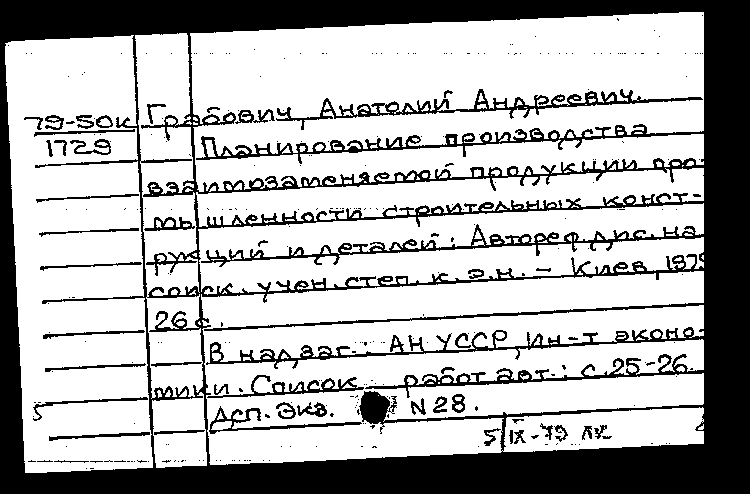 79-50к Грабович, Анатолий Андреевич.
1729 Планирование производства
взаимозаменяемой продукции про-
мышленности строительных конст-
рукций и деталей: Автореф. дис. на
соиск. учен. степ. к. э. н. - Киев, 1979
26 с.
В надзаг.: АН УССР, Ин-т эконо-
мики. Список работ авт.: с. 25-26.
5 Дсп. Экз. N 28.
5/IX-79